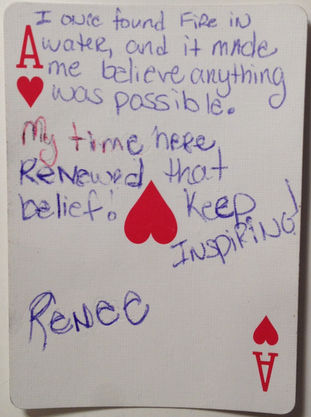 A
I once found Fire in
water, and it made
me believe anything
was possible.
My time here,
Renewed that
belief! Keep
INSPIRING!
RENEE
A